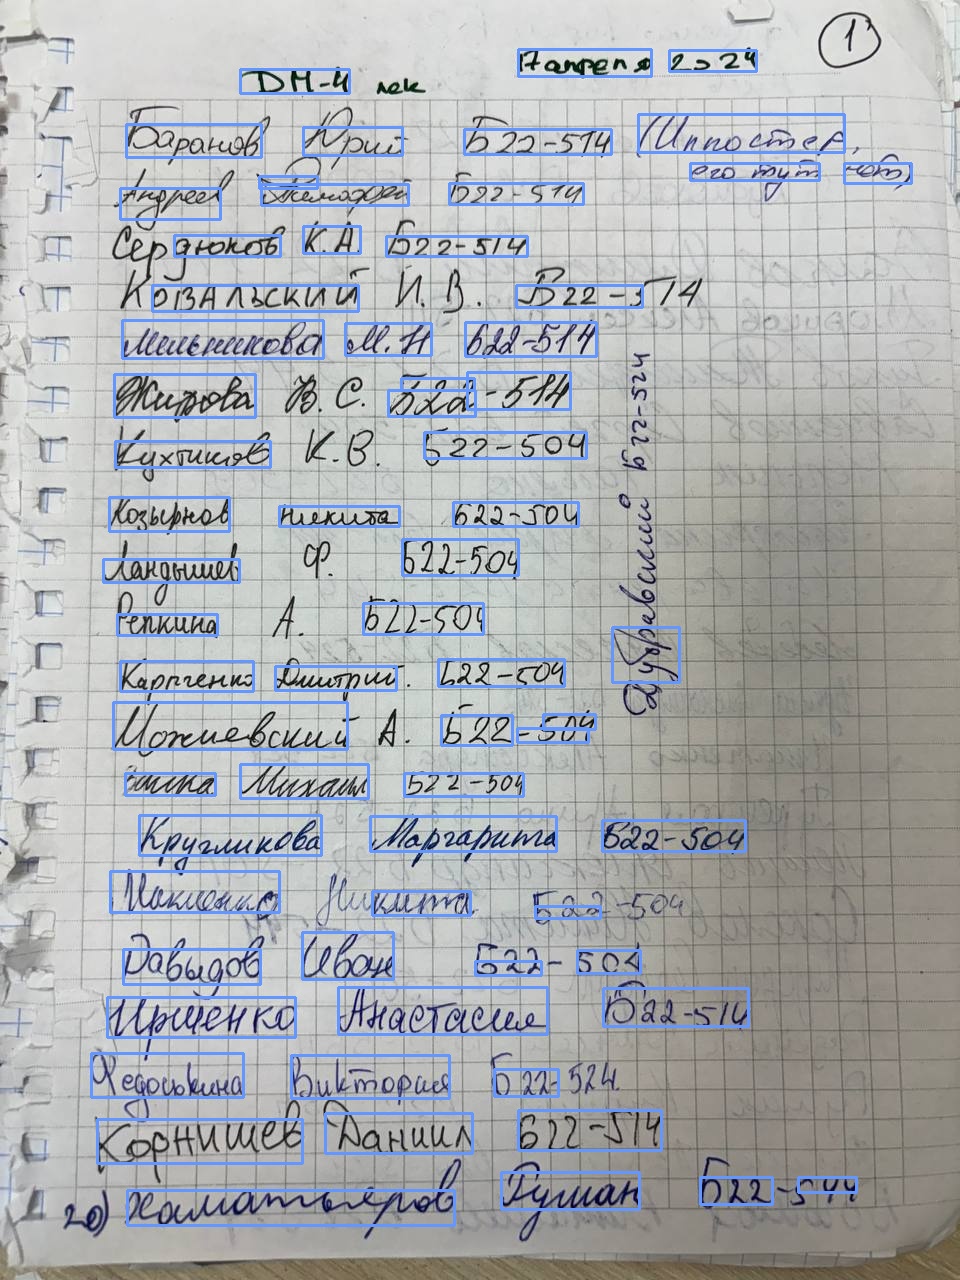 1
17 апреля 2024
ДМ-4 лек
Баранов Юрий Б22-514 (Импостер,
его тут нет)
Андреев Тимофей Б22-514
Сердюков К.А. Б22-514
Ковальский И.В. Б22-514
Мельникова М.Н Б22-514
Жирова В.С. Б22-514
Кухтиков К.В. Б22-504
Козырнов Никита Б22-504
Ландышев Ф. Б22-504
Репкина А. Б22-504
Карпченко Дмитрий. Б22-504
Можиевский А. Б22-504
Михаил Б22-504
Кругликова Маргарита Б22-504
Никита Б22-504
Давыдов Иван Б22-504
Иршенко Анастасия Б22-514
Федоськина Виктория Б22-524.
Корнишев Даниил Б22-514
20) Хаматьяров Б22-544
Дубравский Б22-524